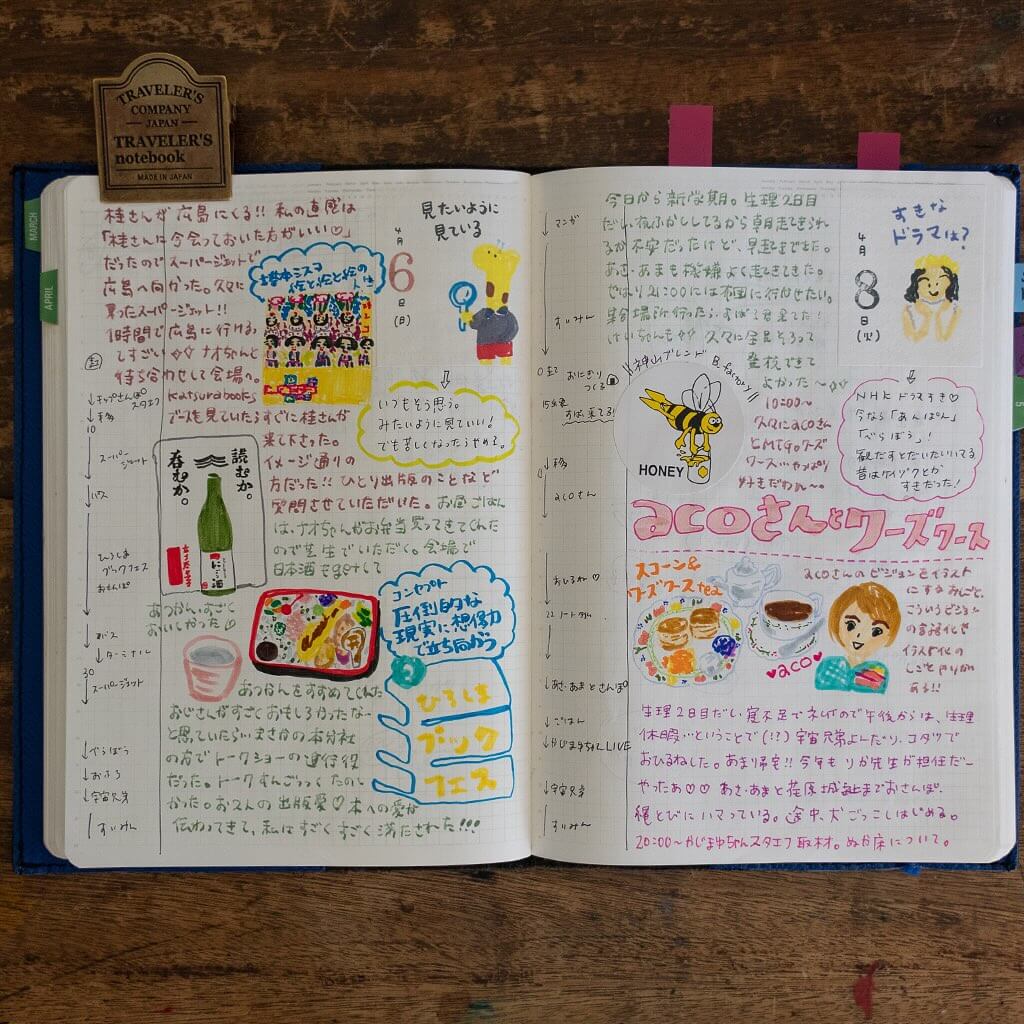 TRAVELER'S
COMPANY
JAPAN
TRAVELER'S
notebook
MADE IN JAPAN
MARCH
APRIL
桂さんが広島にくる!! 私の直感は
「桂さんに今会っておいた方がいい♡」
だったのでスーパージェットで
広島へ向かった。久々に
乗ったスーパージェット!!
1時間で広島に行ける。
しすごい ナオちゃんと
待ち合わせして会場へ。
katsurabooks
ブースを見ていたらすぐに桂さんが
来て下さった。
イメージ通りの
方だった!! ひとり出版のことなど
質問させていただいた。お昼ごはん
は、ナオちゃんがお弁当買ってきてくれた
ので芝生でいただく。会場で
日本酒もgetして
絵と絵と絵の
見たいように
見ている
4月
6
日
(日)
いつもそう思う。
みたいように見ていい!
でも苦しくなったらやめる。
読むか。
呑むか。
にごり酒
あつかん、すごく
おいしかった
コンセプト
圧倒的な
現実に想像力
で立ち向かう
ひろしま
ブック
フェス
あつかんをすすめてくれた
おじさんがすごくおもしろかったな〜
と思っていたら、まさかの本分社
の方でトークショーの進行役
だった。トークすんごっっくたのし
かった。お2人の出版愛♡本への愛が
伝わってきて、私はすごくすごく満たされた!!!
10
スーパージェット
バス
ひろしま
ブックフェス
おさんぽ
バス
ターミナル
30
スーパージェット
べらぼう
おふろ
宇宙兄弟
すいみん
今日から新学期。生理2日目
だし、夜ふかししてるから朝起きられ
るか不安だったけど、早起きできた。
あさ・あまも機嫌よく起きてきた。
やはり21:00には布団に行かせたい。
集合場所行ったら、すばる君来てた!
けいちゃんも 久々に全員そろって
登校できて
よかった〜
10:00〜
久々にacoさん
とMTG。ワーズ
ワース、やっぱり
好きだわぁ〜
すきな
ドラマは?
4月
8
日
(火)
NHKドラマすき♡
今なら「あんぱん」
「べらぼう」!
観だすとだいたいいてる
昔はケイゾクとか
すきだった!
神山ブレンド B.factory
HONEY
acoさんとワーズワース
スコーン&
ワーズワースtea
aco
acoさんのビジョンをイラスト
にするおしごと。
こういうビジョン
の言語化や
イラスト化の
しごとやりがい
ある!!
生理2日目だし、寝不足でネムイので午後からは、生理
休暇ということで(!?) 宇宙兄弟よんだり、コタツで
おひるねした。あまり帰宅!! 今年もりか先生が担任だー
やったぁ♡♡ あさ・あまと荏原城址までおさんぽ。
縄とびにハマっている。途中、犬ごっこはじめる。
20:00〜かじまゆちゃんスタエフ取材。ぬか床について。
マンガ
すいみん
おにぎり
つくる
acoさん
おひるね♡
22
あさ・あまとさんぽ
ごはん
かじまゆちゃんLIVE
宇宙兄弟
すいみん